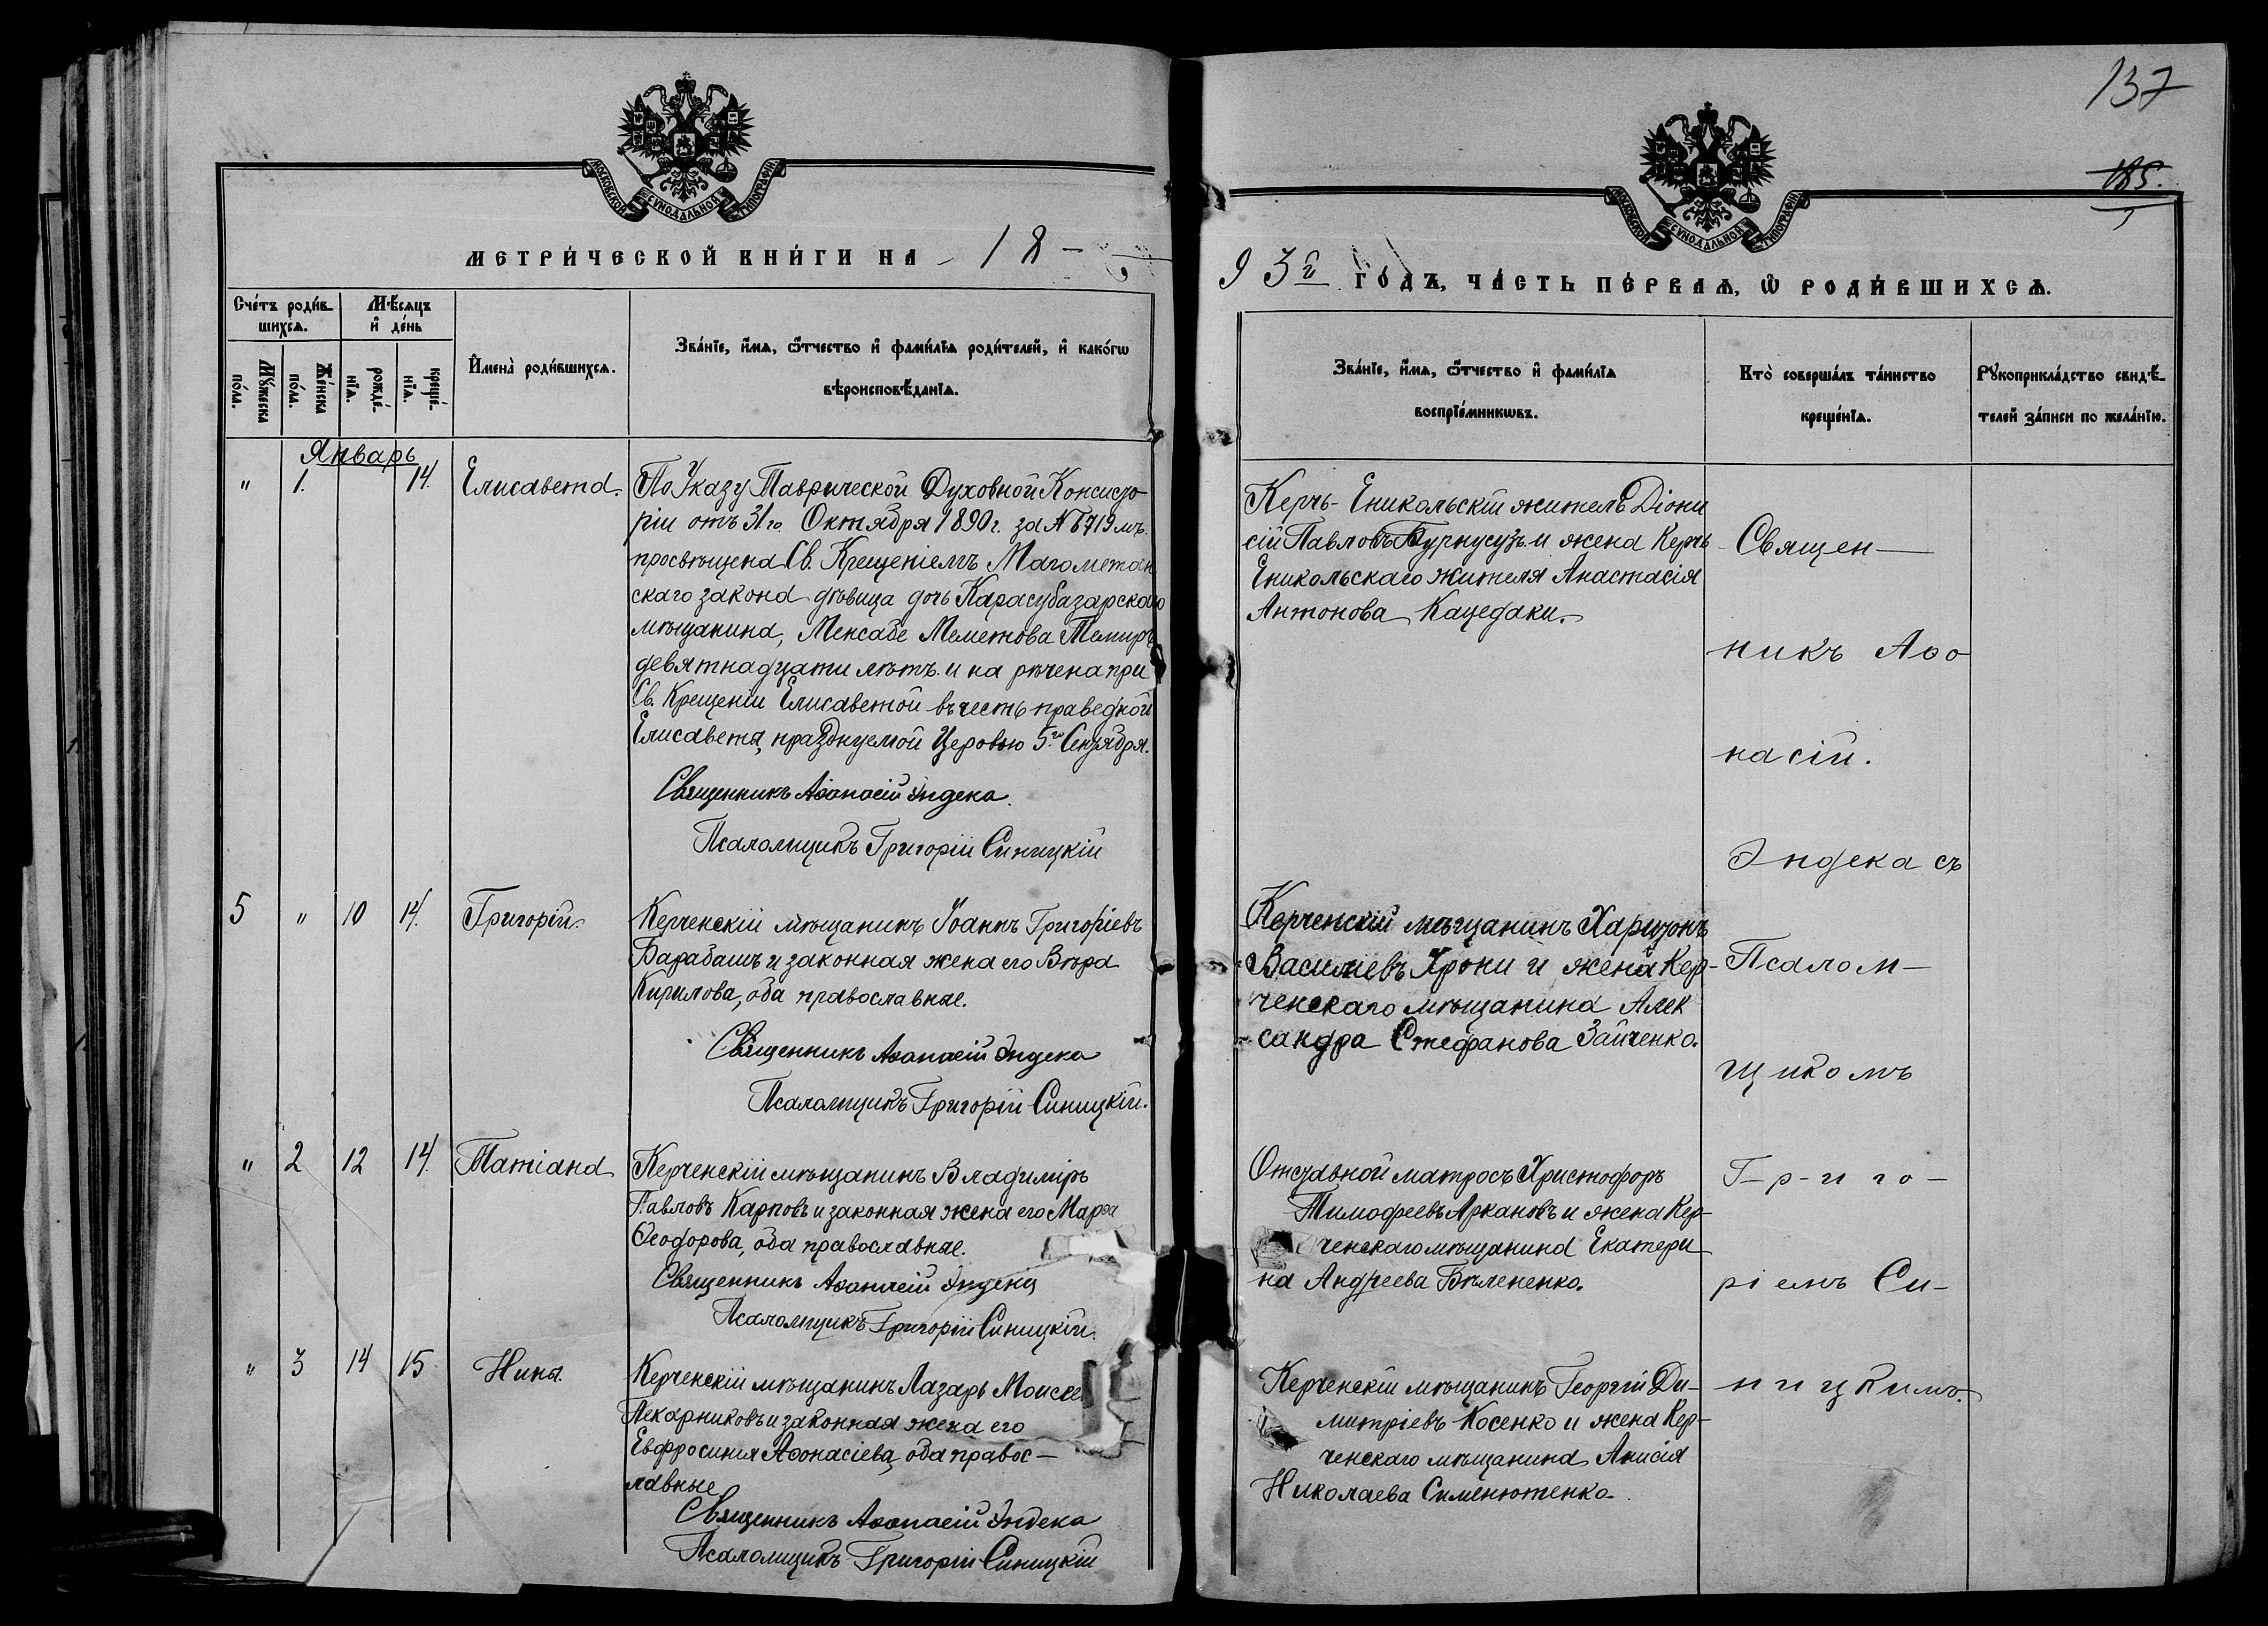 137
185.
МОСКОВСКОЙ СѴНОДАЛЬНОЙ ТИПОГРАФІИ
МЕТРИ́ЧЕСКОЙ КНИ́ГИ НА 18
МОСКОВСКОЙ СѴНОДАЛЬНОЙ ТИПОГРАФІИ
93й ГО́ДЪ, ЧА́СТЬ ПЕ́РВАѦ, Ѡ РОДИ́ВШИХСѦ.
Сче́тъ роди́в-
шихсѧ.
Мѣ́сѧцъ
и де́нь
Мꙋ́жеска
по́ла.
Же́нска
по́ла.
рожде́-
нїѧ.
креще́-
нїѧ.
Имена̀ роди́вшихсѧ.
Зва́нїе, и́мѧ, ѻ҆́тчество и фами́лїѧ роди́телей, и како́гѡ
вѣроисповѣ́данїѧ.
Зва́нїе, и́мѧ, ѻ҆́тчество и фами́лїѧ
воспрїе́мникѡвъ.
Кто̀ соверша́лъ та́инство
креще́нїѧ.
Рꙋкоприкла́дство свидѣ́-
телей за́писи по жела́нїю.
Январь
" 1. 14. Елисавета.
По Указу Таврической Духовной Консисто
ріи отъ 31го Октября 1890г. за № 6719 мъ
просвѣщена Св. Крещеніемъ Магометан
скаго закона дѣвица дочь Карасубазарскаго
мѣщанина, Менсабе Меметова Темиръ
девятнадцати лѣтъ и на рѣчена при
Св. Крещеніи Елисаветой въ честь праведной
Елисаветы, празднуемой Церовью 5го Сентября.
Священникъ Аѳанасій Индека.
Псаломщикъ Григорій Синицкій
Керчь-Еникольскій житель Діони
сій Павловъ Бурнусузъ и жена Керчь
Еникольскаго жителя Анастасія
Антонова Кацедаки.
Священ-
никъ Аѳо
насій.
Индека съ
Псалом-
щикомъ
Г-р-и го-
ріемъ Си-
ницкимъ.
5 " 10 14. Григорій.
Керченскій мѣщанинъ Іоаннъ Григоріевъ
Барабашъ и законная жена его Вѣра
Кирилова, оба православные.
Священникъ Аѳанасій Индека
Псаломщикъ Григорій Синицкій.
Керченскій мѣщанинъ Харитонъ
Василіевъ Хрони и жена Кер-
ченскаго мѣщанина Алек
сандра Стефанова Зайченко.
" 2 12 14. Татіана
Керченскій мѣщанинъ Владиміръ
Павловъ Карповъ и законная жена его Марѳа
Ѳеодорова, оба православные.
Священникъ Аѳанасій Индека
Псаломщикъ Григорій Синицкій.
Отставной матросъ Христофоръ
Тимофеевъ Аркановъ и жена Кер-
ченскаго мѣщанина Екатери-
на Андреева Бѣлененко.
" 3 14 15 Нина.
Керченскій мѣщанинъ Лазарь Моисее
Пекарниковъ и законная жена его
Евфросинія Аѳонасіева, оба правос-
лавные
Священникъ Аѳанасій Индека
Псаломщикъ Григорій Синицкій
Керченскій мѣщанинъ Георгій Ди-
митріевъ Косенко и жена Кер-
ченскаго мѣщанина Анисія
Николаева Сименютенко.